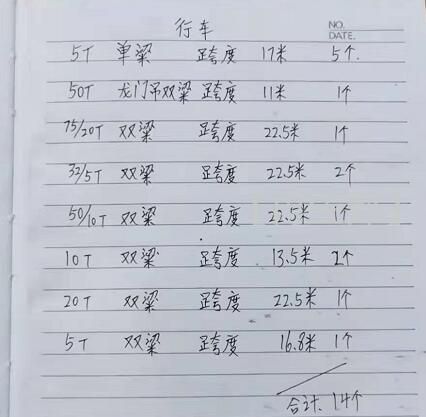 行车
NO.
DATE.
5T 单梁 跨度 17米 5个.
50T 龙门吊双梁 跨度 11米 1个
75/20T 双梁 跨度 22.5米 1个
32/5T 双梁 跨度 22.5米 2个
50/10T 双梁 跨度 22.5米 1个
10T 双梁 跨度 13.5米 2个
20T 双梁 跨度 22.5米 1个
5T 双梁 跨度 16.8米 1个
合计. 14个